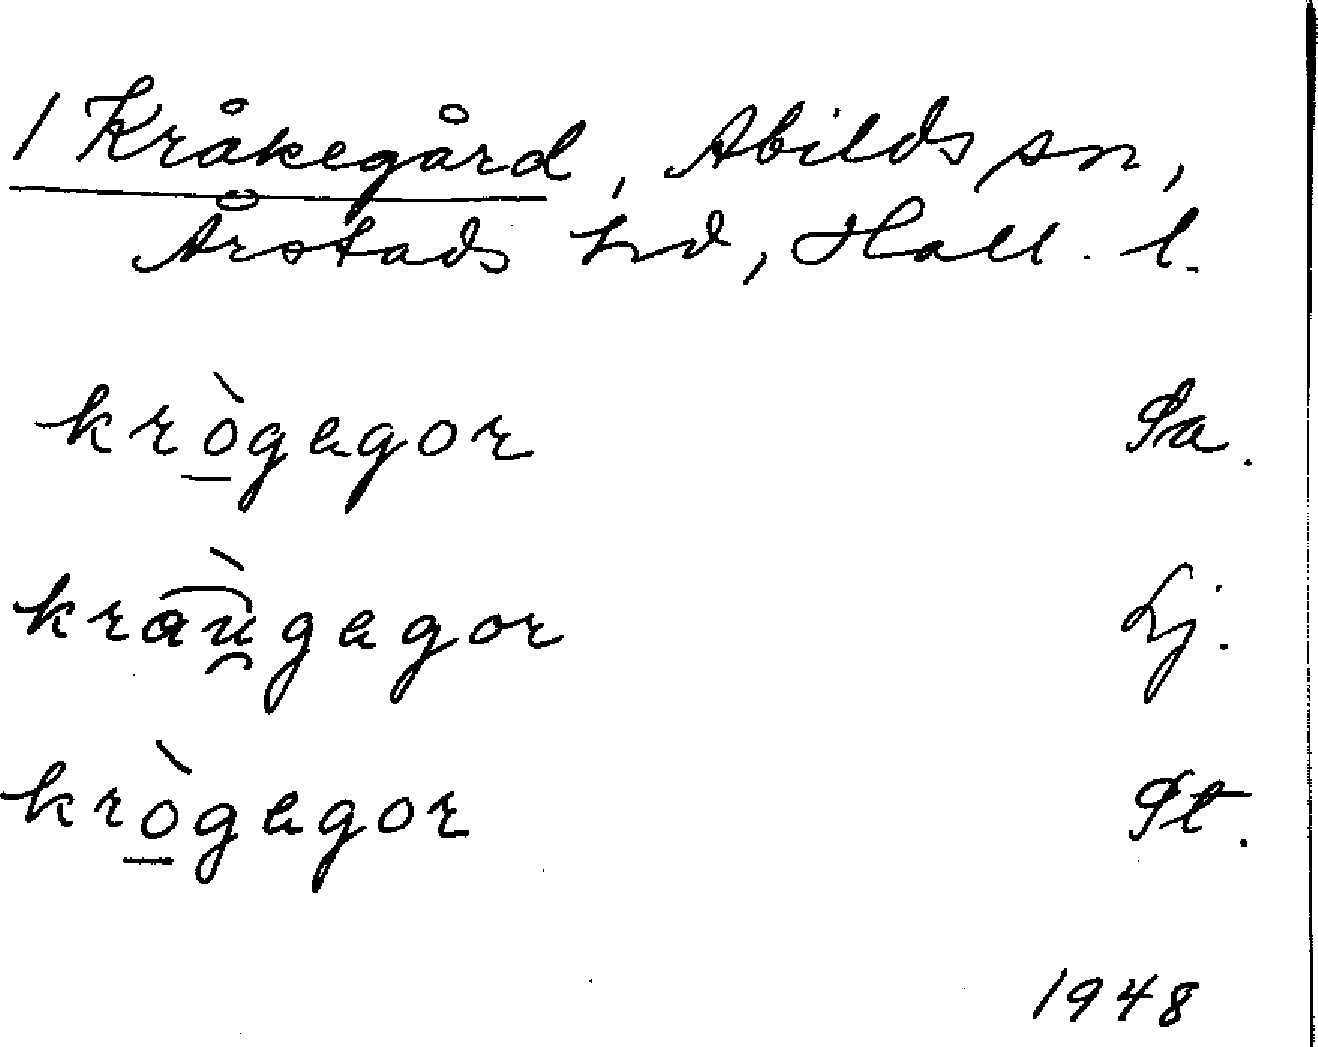 1 Kråkegård, Abilds sn,
Årstads hd, Hall. l.
krò̱gagor Sa.
kràu̯gagor Lj.
krò̱gagor St.
1948